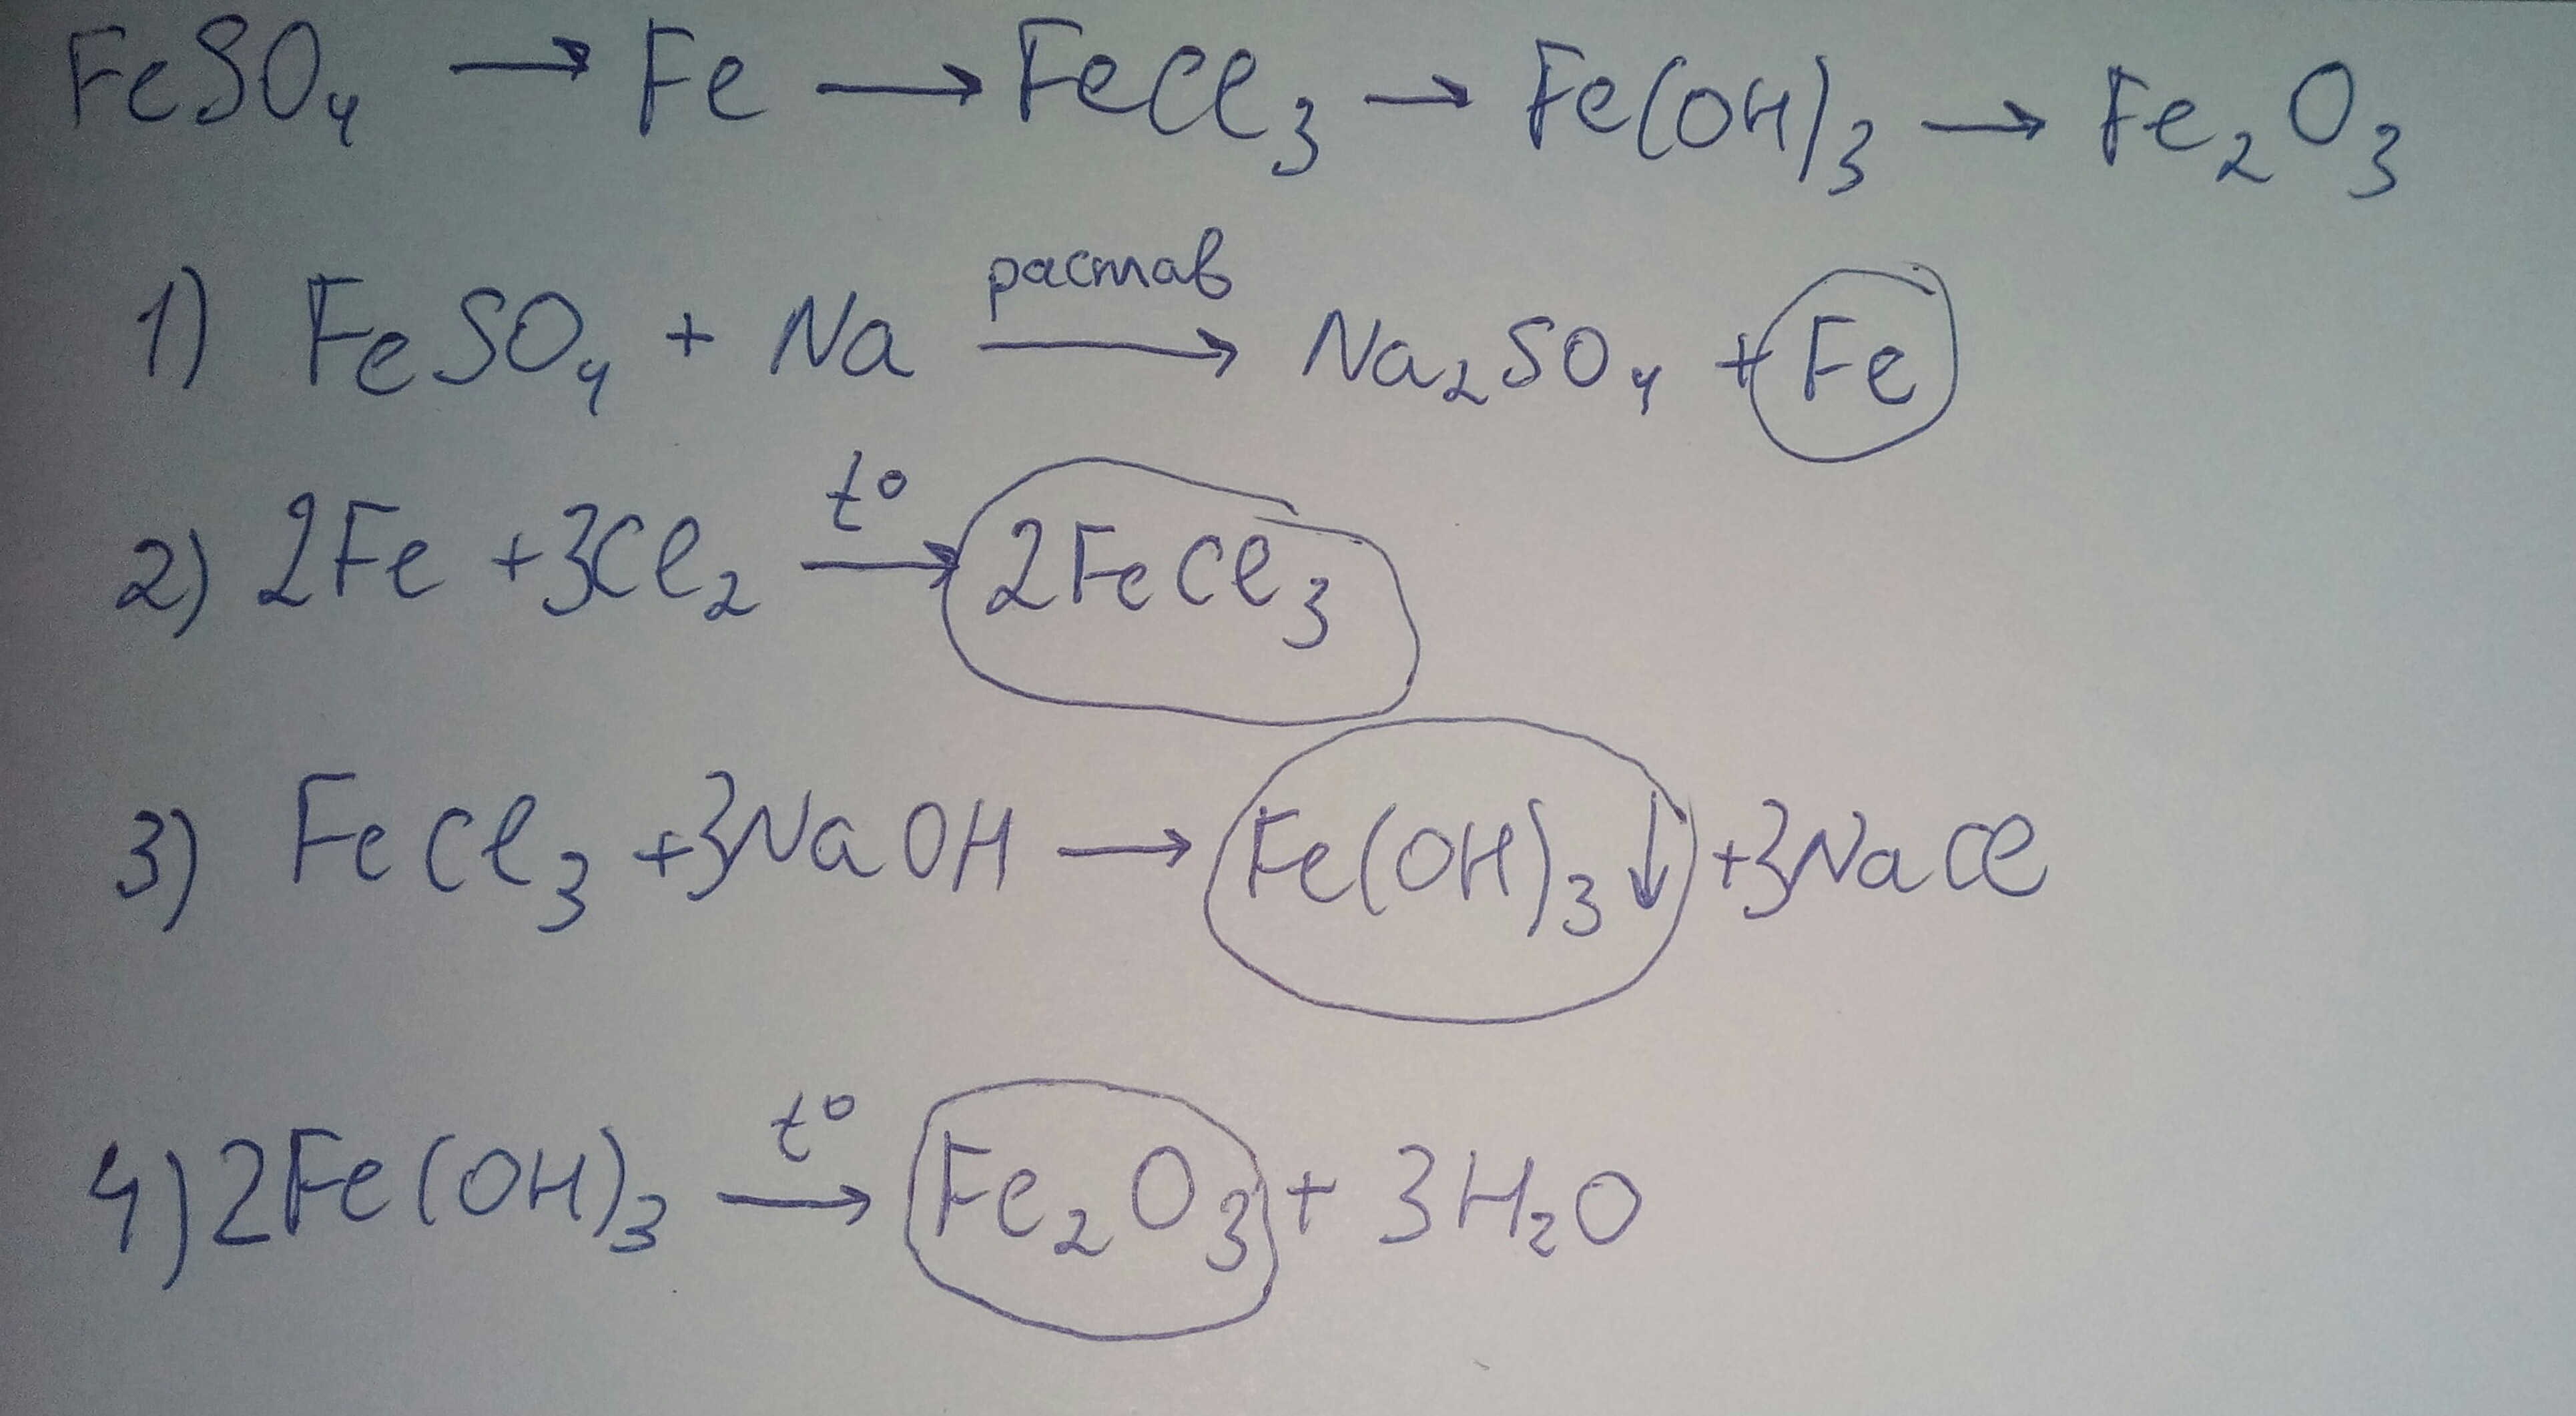 FeSO₄ → Fe → FeCl₃ → Fe(OH)₃ → Fe₂O₃
растав
1) FeSO₄ + Na → Na₂SO₄ + Fe
t°
2) 2Fe + 3Cl₂ → 2FeCl₃
3) FeCl₃ + 3NaOH → Fe(OH)₃↓ + 3NaCl
t°
4) 2Fe(OH)₃ → Fe₂O₃ + 3H₂O